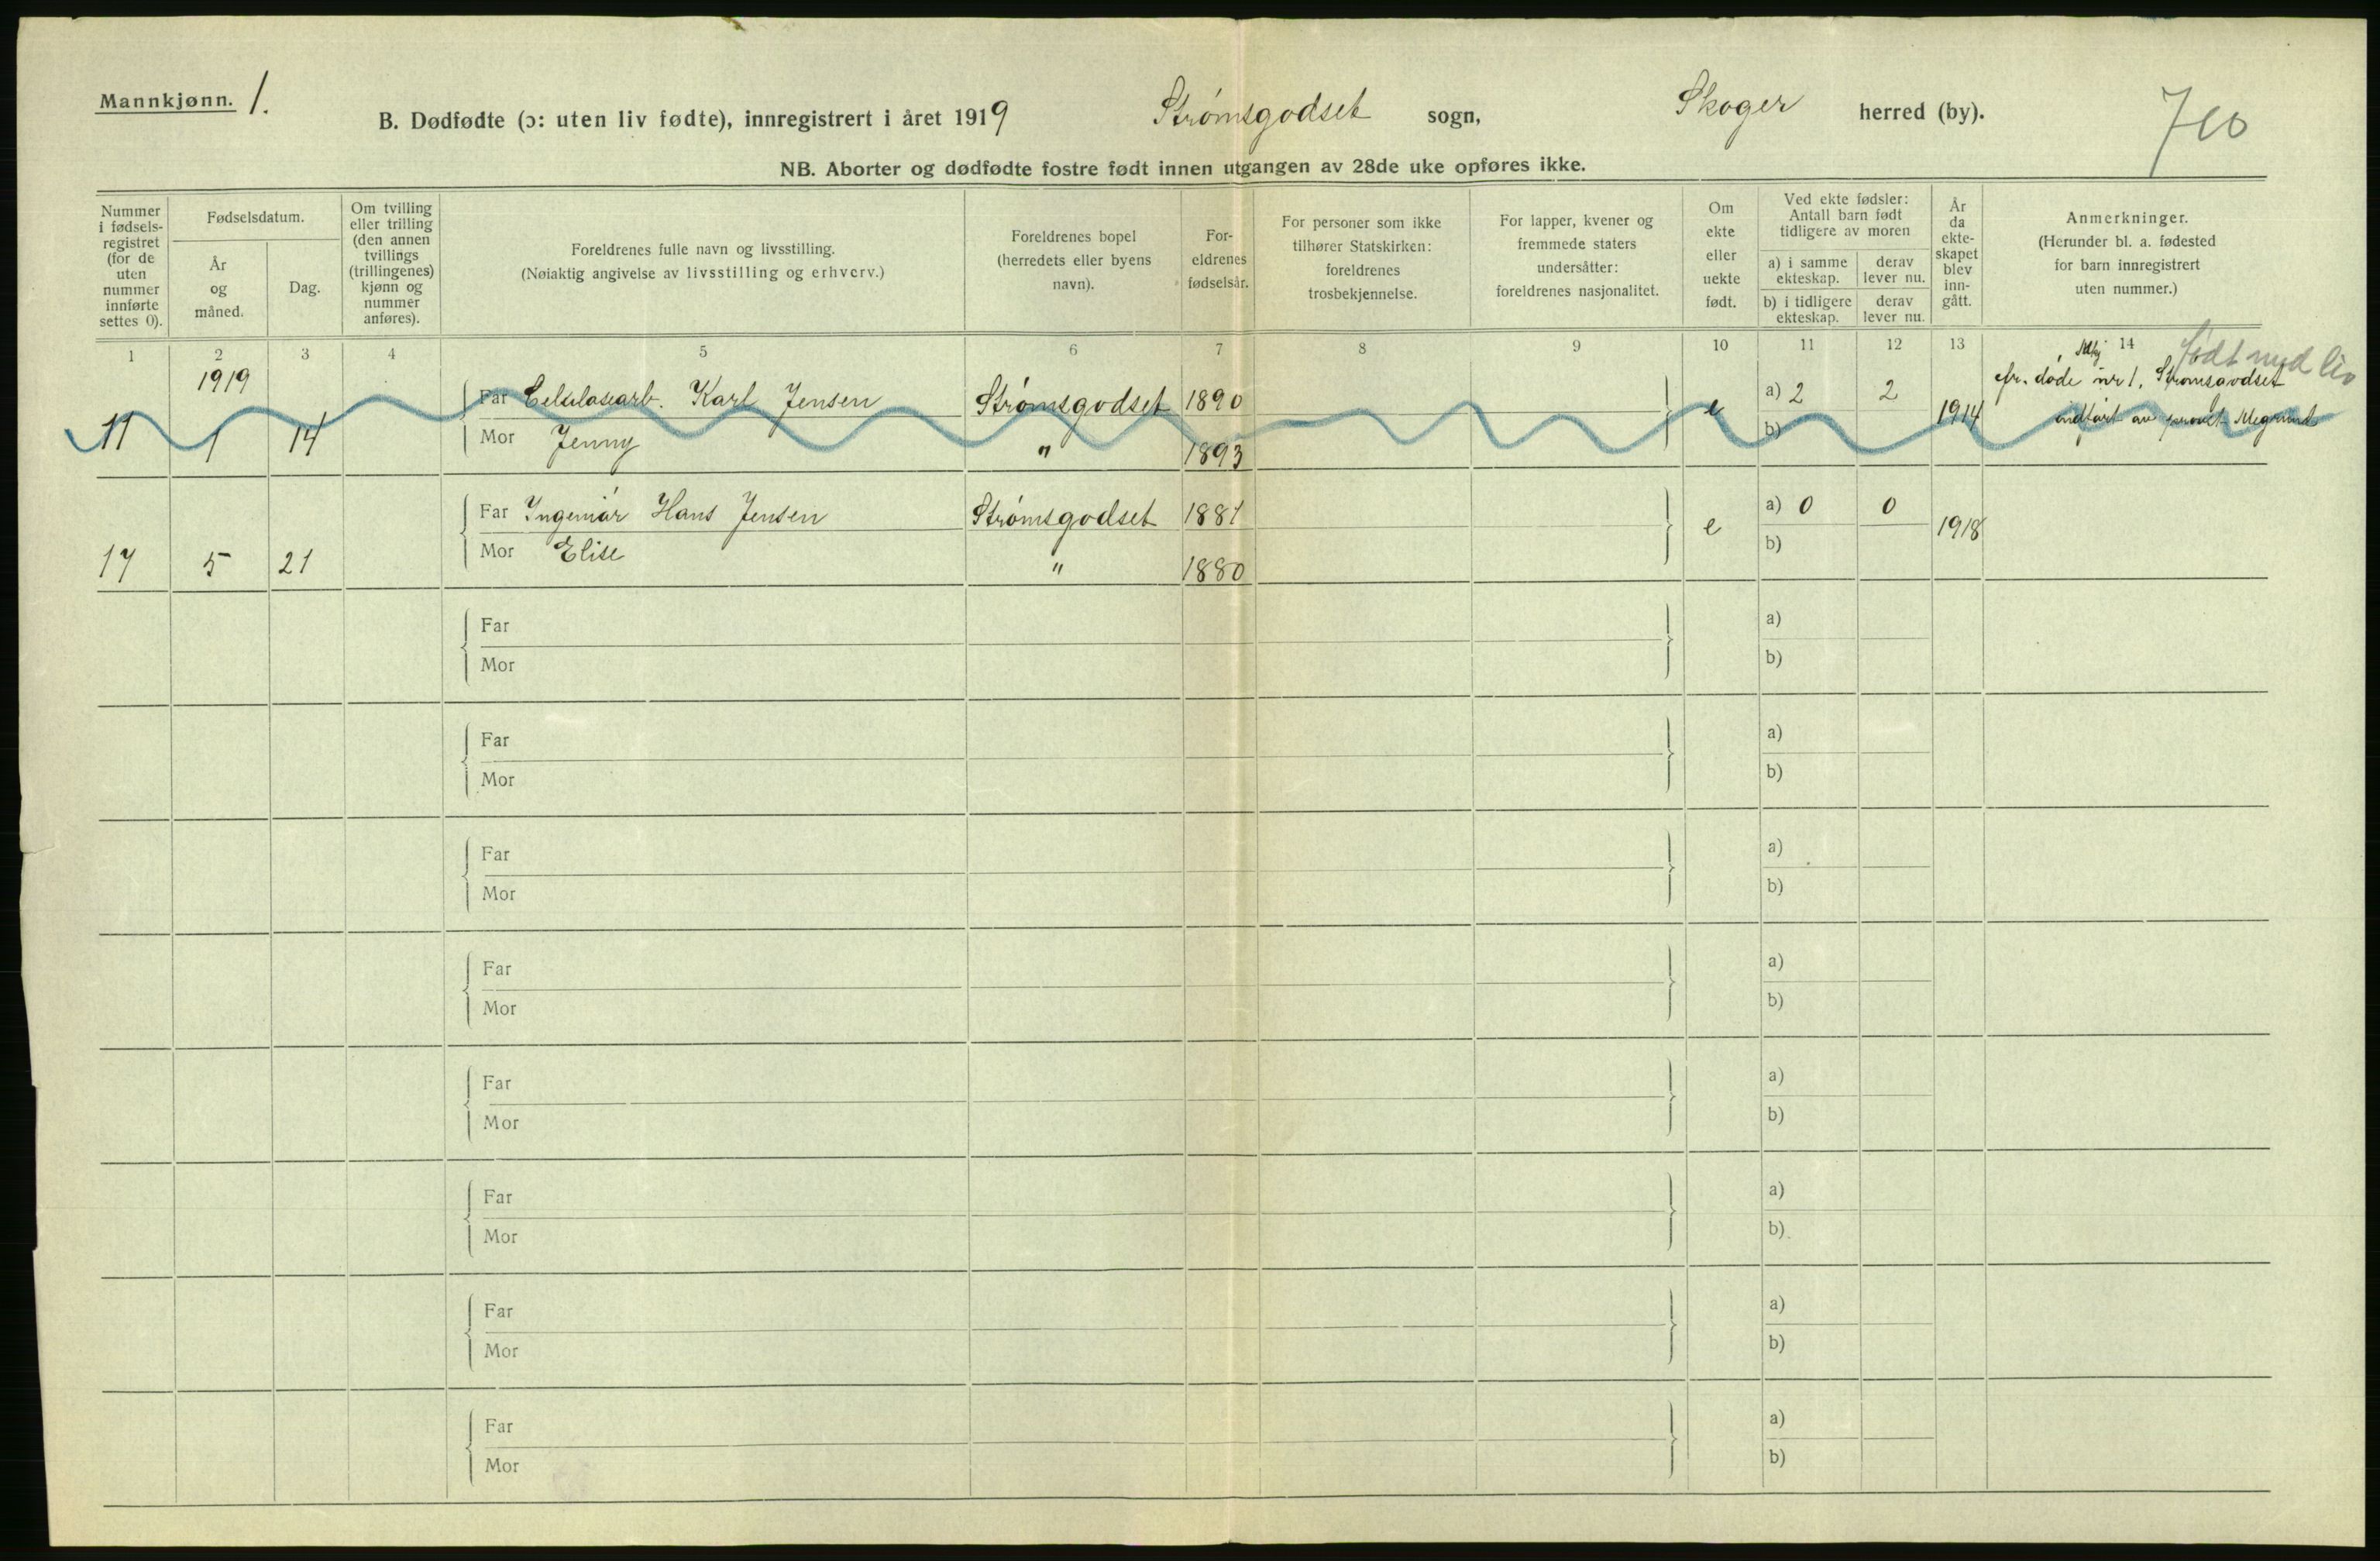 Mannkjønn. 1.
B. Dødfødte (ɔ: uten liv fødte), innregistrert i året 1919 Strømsgodset sogn, Skoger herred (by).
NB. Aborter og dødfødte fostre født innen utgangen av 28de uke opføres ikke.
Nummer
i fødsels-
registret
(for de
uten
nummer
innførte
settes 0).
Fødselsdatum.
År
og
måned.
Dag.
Om tvilling
eller trilling
(den annen
tvillings
(trillingenes)
kjønn og
nummer
anføres).
Foreldrenes fulle navn og livsstilling.
(Nøiaktig angivelse av livsstilling og erhverv.)
Foreldrenes bopel
(herredets eller byens
navn).
For-
eldrenes
fødselsår.
For personer som ikke
tilhører Statskirken:
foreldrenes
trosbekjennelse.
For lapper, kvener og
fremmede staters
undersåtter:
foreldrenes nasjonalitet.
Om
ekte
eller
uekte
født.
Ved ekte fødsler:
Antall barn født
tidligere av moren
a) i samme
ekteskap.
derav
lever nu.
b) i tidligere
ekteskap.
derav
lever nu.
År
da
ekte-
skapet
blev
inn-
gått.
Anmerkninger.
(Herunder bl. a. fødested
for barn innregistrert
uten nummer.)
1 2 3 4 5 6 7 8 9 10 11 12 13 14
født med liv
1919
Far Karl Jensen Strømsgodset 1890 a) 2 2 døde nr 1, Strømsgodset
11 1 14 Mor Jenny " 1893 e b) 1914 indført av
Far Hans Jensen Strømsgodset 1881 a) 0 0
17 5 21 Mor Elise " 1880 e b) 1918
Far a)
Mor b)
Far a)
Mor b)
Far a)
Mor b)
Far a)
Mor b)
Far a)
Mor b)
Far a)
Mor b)
Far a)
Mor b)
Far a)
Mor b)